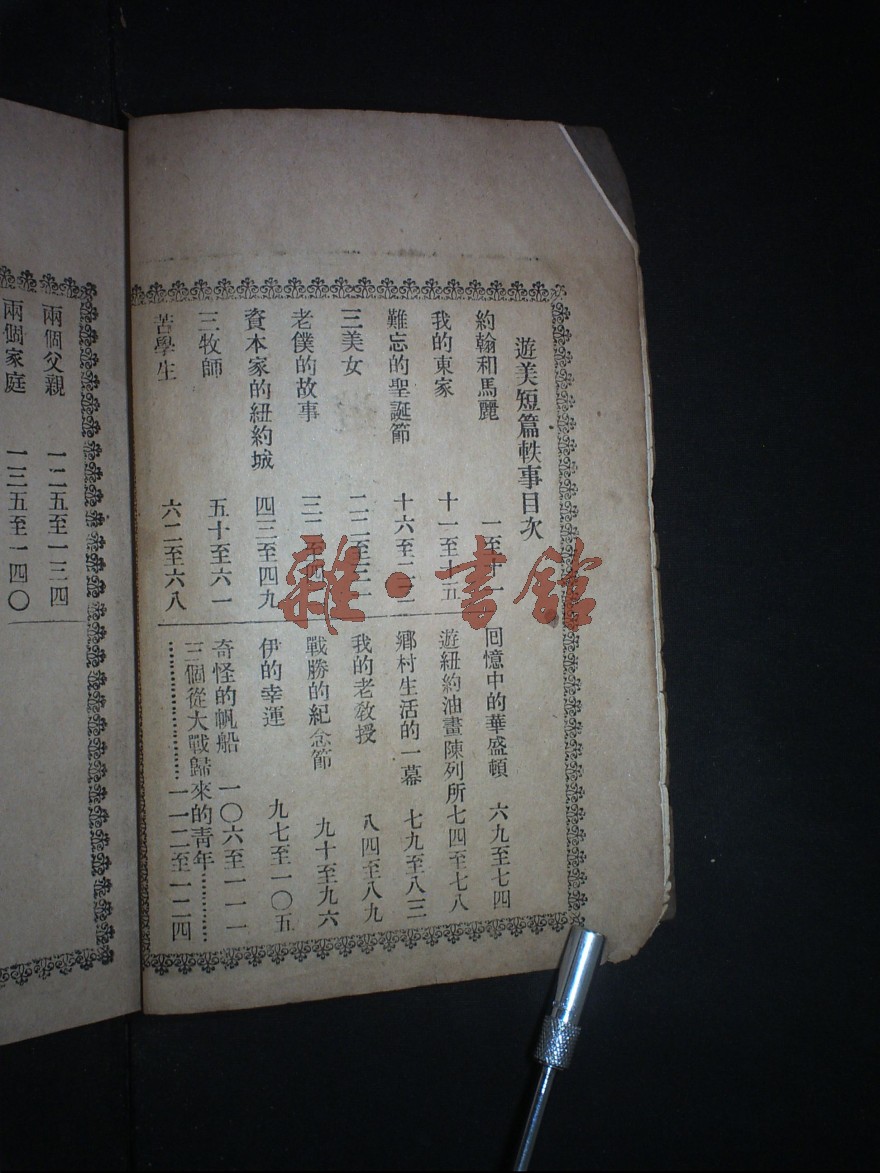 遊美短篇軼事目次
約翰和馬麗 一至十一
我的東家 十一至十五
難忘的聖誕節 十六至二二
三美女 二二至三一
老僕的故事 三二至四
資本家的紐約城 四三至四九
三牧師 五十至六一
苦學生 六二至六八
回憶中的華盛頓 六九至七四
遊紐約油畫陳列所七四至七八
鄉村生活的一幕 七九至八三
我的老教授 八四至八九
戰勝的紀念節 九十至九六
伊的幸運 九七至一〇五
奇怪的帆船 一〇六至一一一
三個從大戰歸來的青年
一一二至一二四
兩個父親 一二五至一三四
兩個家庭 一三五至一四〇
雜·書館